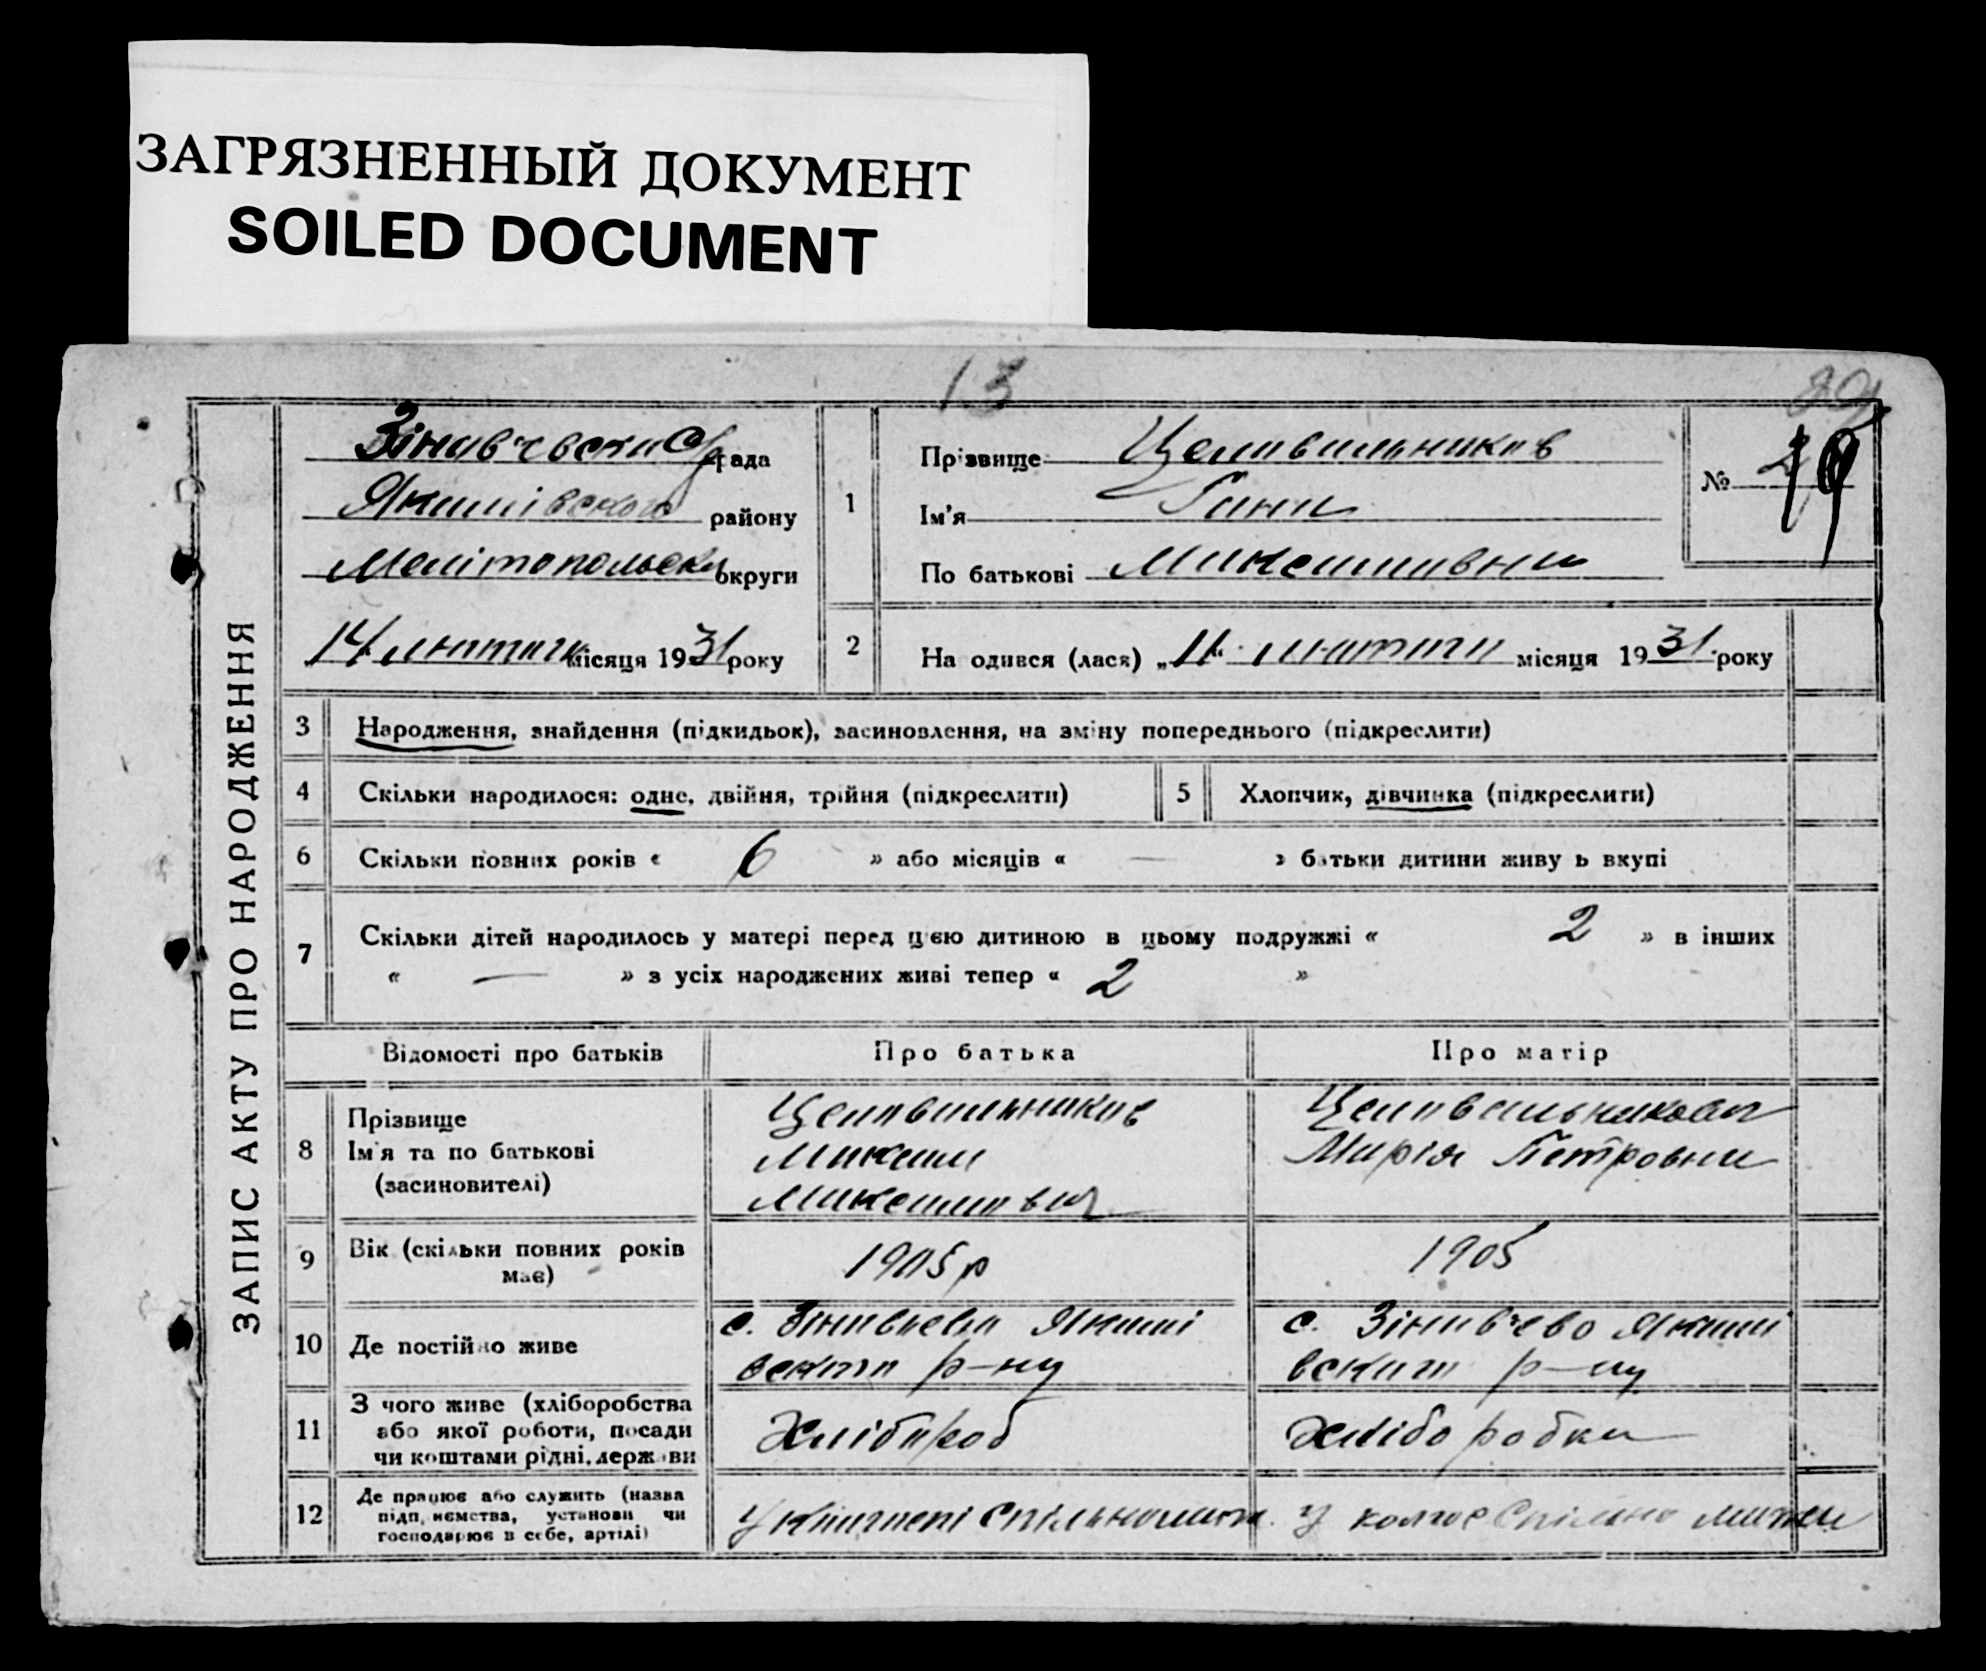 ЗАГРЯЗНЕННЫЙ ДОКУМЕНТ
SOILED DOCUMENT
13
ЗАПИС АКТУ ПРО НАРОДЖЕННЯ
рада
Якимівского району
Мелітопольськ округи
14 лютого місяця 1931 року
1
Прізвище Целовальников
Ім'я Ганна
По батькові
№ 19
2
На одився (лася) „11" лютого місяця 1931 року
3 Народження, знайдення (підкидьок), засиновлення, на зміну попереднього (підкреслити)
4 Скільки народилося: одне, двійня, трійня (підкреслити)
5 Хлопчик, дівчинка (підкреслити)
6 Скільки повних років « 6 » або місяців « — » батьки дитини живу ь вкупі
7 Скільки дітей народилось у матері перед цією дитиною в цьому подружжі « 2 » в інших
« — » з усіх народжених живі тепер « 2 »
Відомості про батьків
Про батька
Про матір
8
Прізвище
Ім'я та по батькові
(засиновителі)
Целовальников
Целовальникова
Марія Петровна
9
Вік (скільки повних років
має)
1905 р
1905
10 Де постійно живе
с. Якимі
вского р-ну
с. Зінов'єво Якимі
вского р-ну
11
З чого живе (хліборобства
або якої роботи, посади
чи коштами рідні, держави
Хлібороб
Хліборобка
12
Де працює або служить (назва
підп, иємства, установи чи
господарює в себе, артілі)
у колгос Спільна